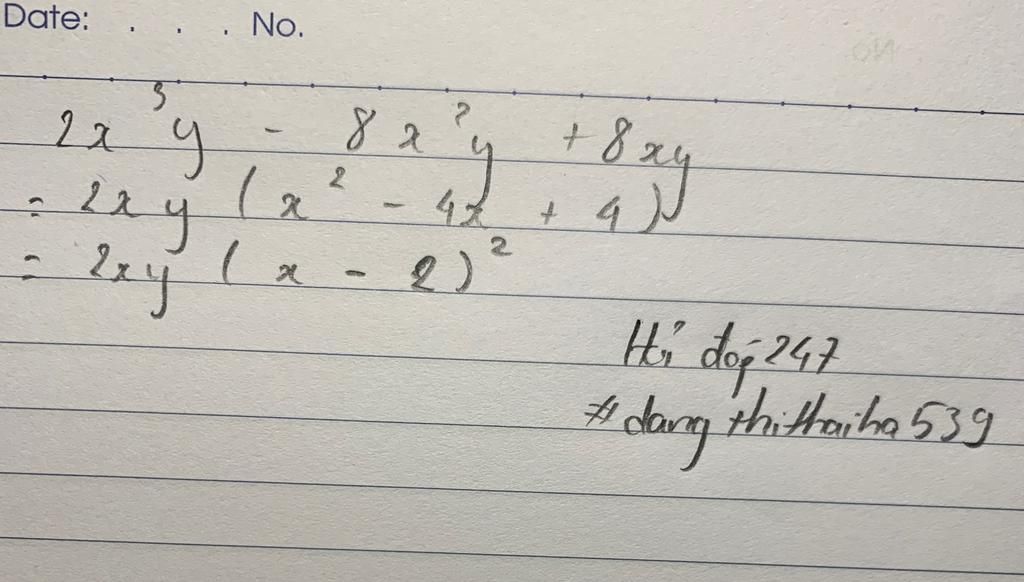 Date: . . . . No.
2x³y - 8x²y + 8xy
= 2xy (x² - 4x + 4)
= 2xy (x - 2)²
Hỏi đáp 247
#dangthithaiha539